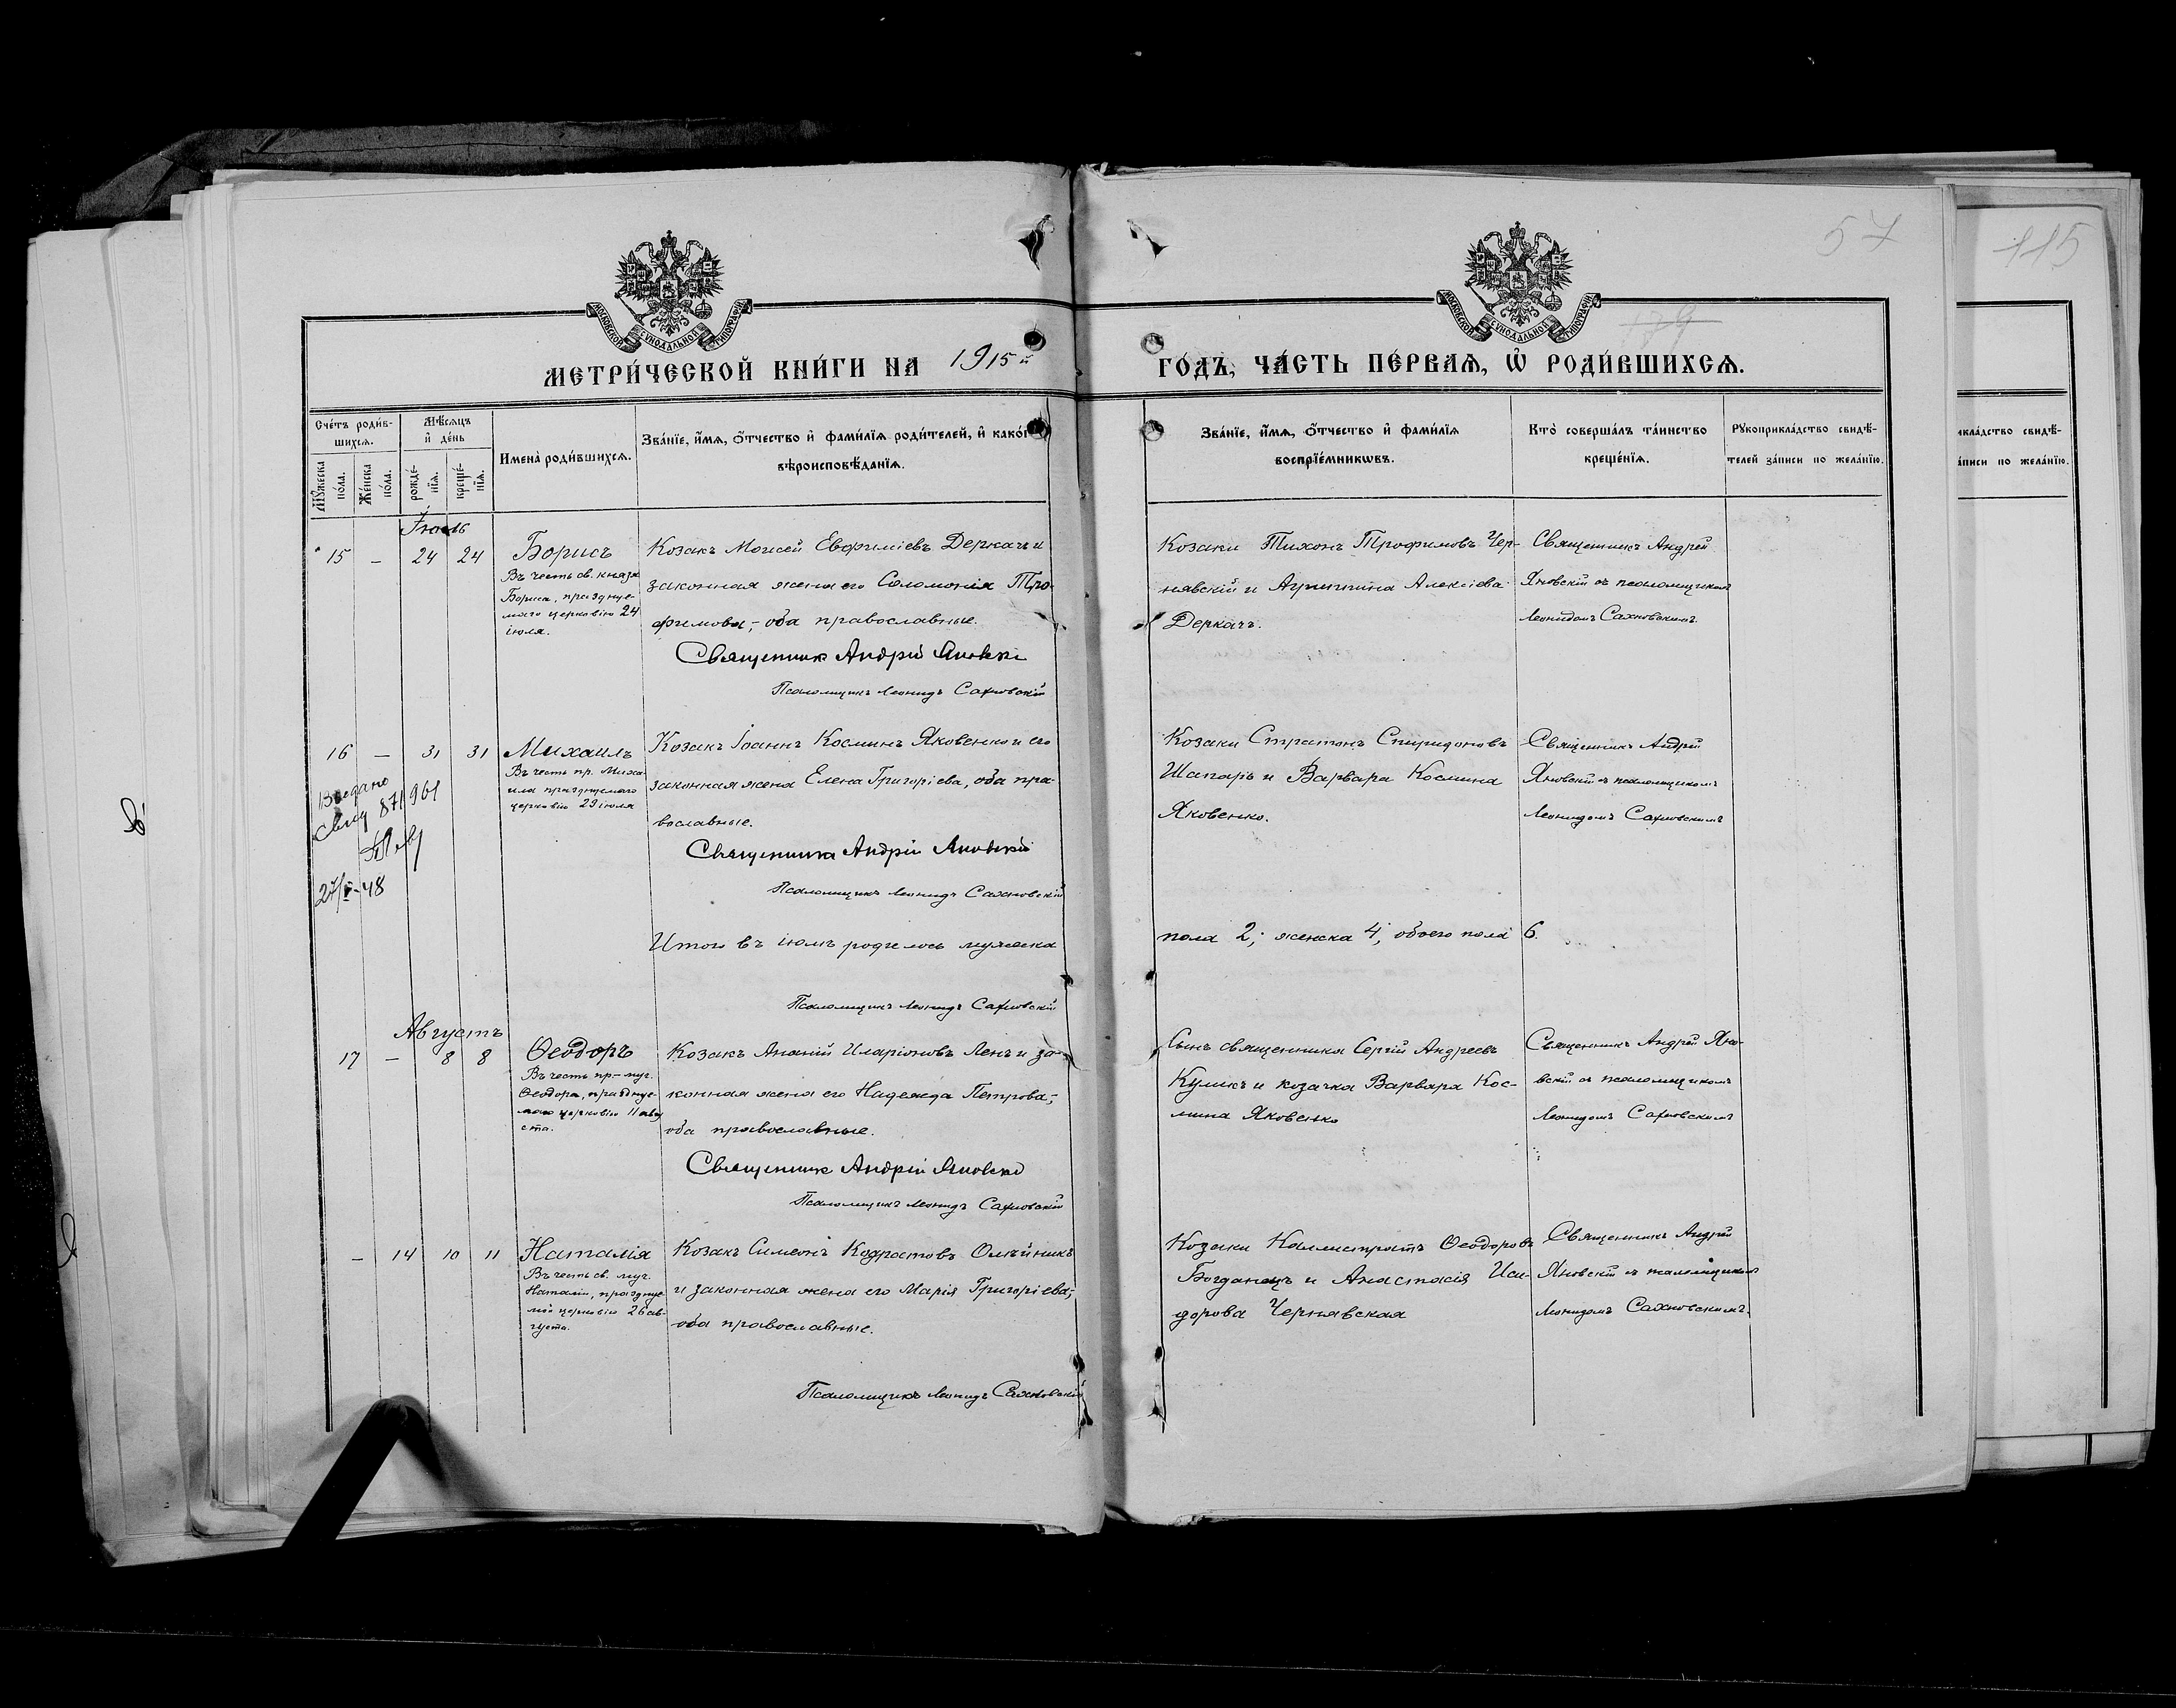 57
115
179
МОСКОВСКОЙ СѴНОДАЛЬНОЙ ТИПОГРАФІИ
МОСКОВСКОЙ СѴНОДАЛЬНОЙ ТИПОГРАФІИ
МЕТРИ́ЧЕСКОЙ КНИ́ГИ НА 1915й
ГО́ДЪ, ЧА́СТЬ ПЕ́РВАѦ, Ѽ РОДИ́ВШИХСѦ.
Сче́тъ роди́в-
шихсѧ.
Мꙋ́жеска по́ла.
Же́нска по́ла.
Мѣ́сѧцъ
и҆ де́нь
рожде́-
нїѧ.
креще́-
нїѧ.
Имена̀ роди́вшихсѧ.
Зва́нїе, и҆́мѧ, ѻ҆́тчество и҆ фами́лїѧ роди́телей, и҆ како́г
вѣроисповѣ́данїѧ.
Зва́нїе, и҆́мѧ, ѻ҆́тчество и҆ фами́лїѧ
воспрїе́мникѡвъ.
Кто̀ соверша́лъ та́инство
креще́нїѧ.
Рꙋкоприкла́дство свидѣ́-
телей за́писи по жела́нїю.
икла́дство свидѣ́-
а́писи по жела́нїю.
Іюль
15 — 24 24 Борисъ
Въ честь св. князя
Бориса, празднуе-
маго церковію 24
іюля.
Козакъ Моисей Евфиміевъ Деркачъ и
законная жена его Соломонія Тро-
фимова,- оба православные.
Священникъ Андрей Яновскій
Псаломщикъ Леонидъ Сахновскій
Козаки Тихонъ Трофимовъ Чер-
нявскій и Агрипина Алексіева
Деркачъ.
Священникъ Андрей
Яновскій съ псаломщикомъ
Леонидомъ Сахновскимъ.
16 — 31 31 Михаилъ
Въ честь пр. Миха-
ила празднуемаго
церковію 29 іюля
Выдано
свид 871961
27/V-48
Козакъ Іоаннъ Косминъ Яковенко и его
законная жена Елена Григоріева, оба пра-
вославные.
Священникъ Андрій Яновскій
Псаломщикъ Леонидъ Сахновскій
Козаки Стратонъ Спиридоновъ
Шапаръ и Варвара Космина
Яковенко.
Священникъ Андрей
Яновскій съ псаломщикомъ
Леонидомъ Сахновскимъ
Итого въ іюлѣ родилось мужеска
пола 2; женска 4; обоего пола 6.
Псаломщикъ Леонидъ Сахновскій
Августъ
17 — 8 8 Ѳеодоръ
Въ честь пр- муч.
Ѳеодора, празднуе-
маго церковію 11 авгу
ста.
Козакъ Ананій Иларіоновъ Ленъ и за-
конная жена его Надежда Петрова,-
оба православные.
Священникъ Андрій Яновскій
Псаломщикъ Леонидъ Сахновскій
Сынъ священника Сергій Андреевъ
Куликъ и козачка Варвара Кос-
мина Яковенко
Священникъ Андрей Яно-
вскій съ псаломщикомъ
Леонидомъ Сахновскимъ
— 14 10 11 Наталія
Въ честь св. муч.
Наталіи, празднуе-
мой церковію 26 ав-
густа.
Козакъ Симеонъ Кодратовъ Олейникъ
и законная жена его Марія Григоріева,-
оба православные.
Псаломщикъ Леонидъ Сахновскій
Козаки Каллистратъ Ѳеодоровъ
Богданецъ и Анастасія Иси-
дорова Чернявская
Священникъ Андрей
Яновскій съ псаломщикомъ
Леонидомъ Сахновскимъ.